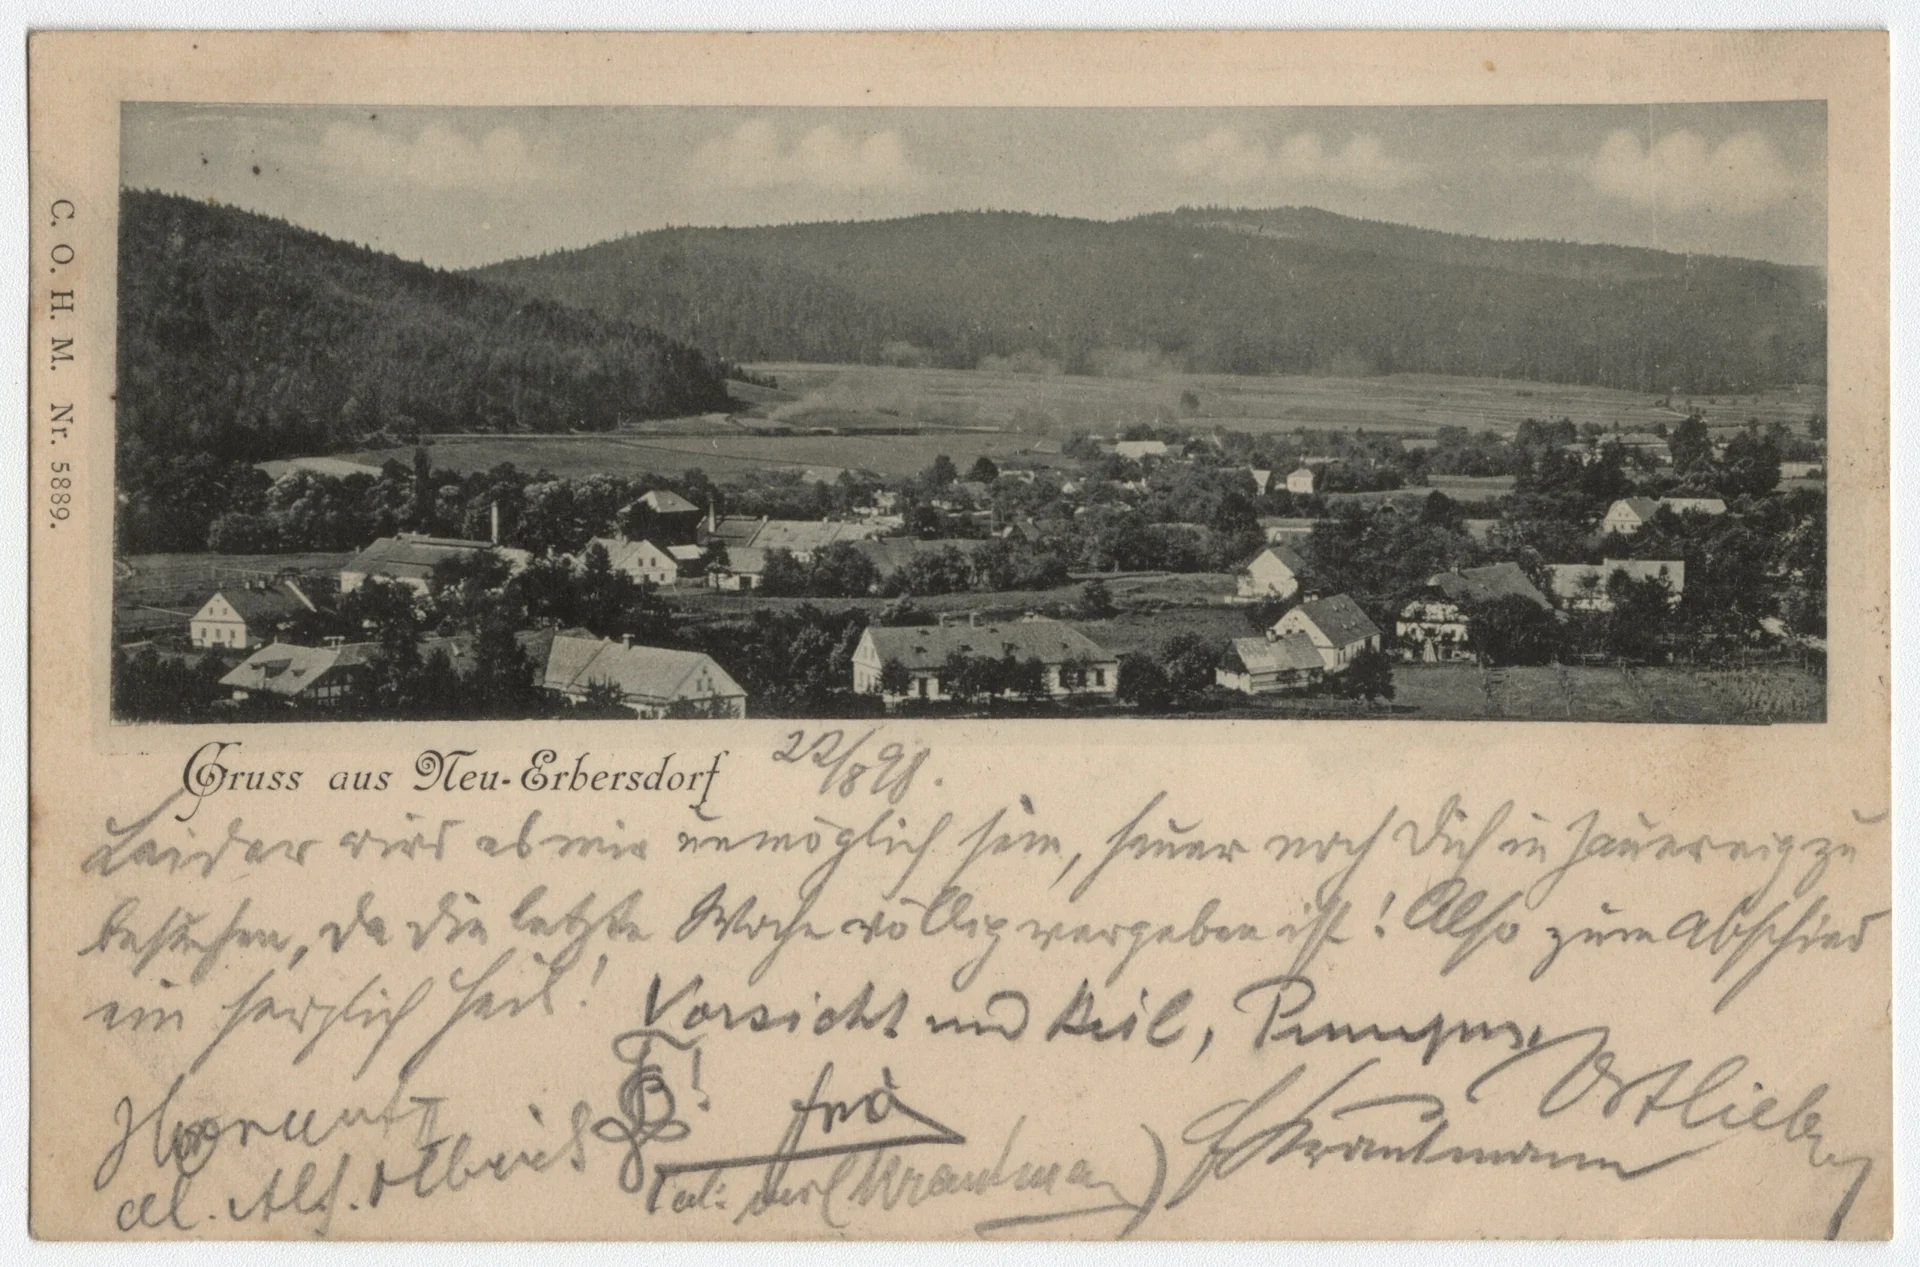 C. O. H. M. Nr. 5889.
Gruss aus Neu-Erbersdorf 22/8 98.
Leider wird es mir unmöglich sein, heuer noch Dich in Jauernig zu
besuchen, da die letzte Woche völlig vergeben ist! Also zum Abschied
ein herzlich Heil! Vorsicht und Heil,
Ostlieb
al. Alf. Olbrich
Krautmann
(Krautmann)